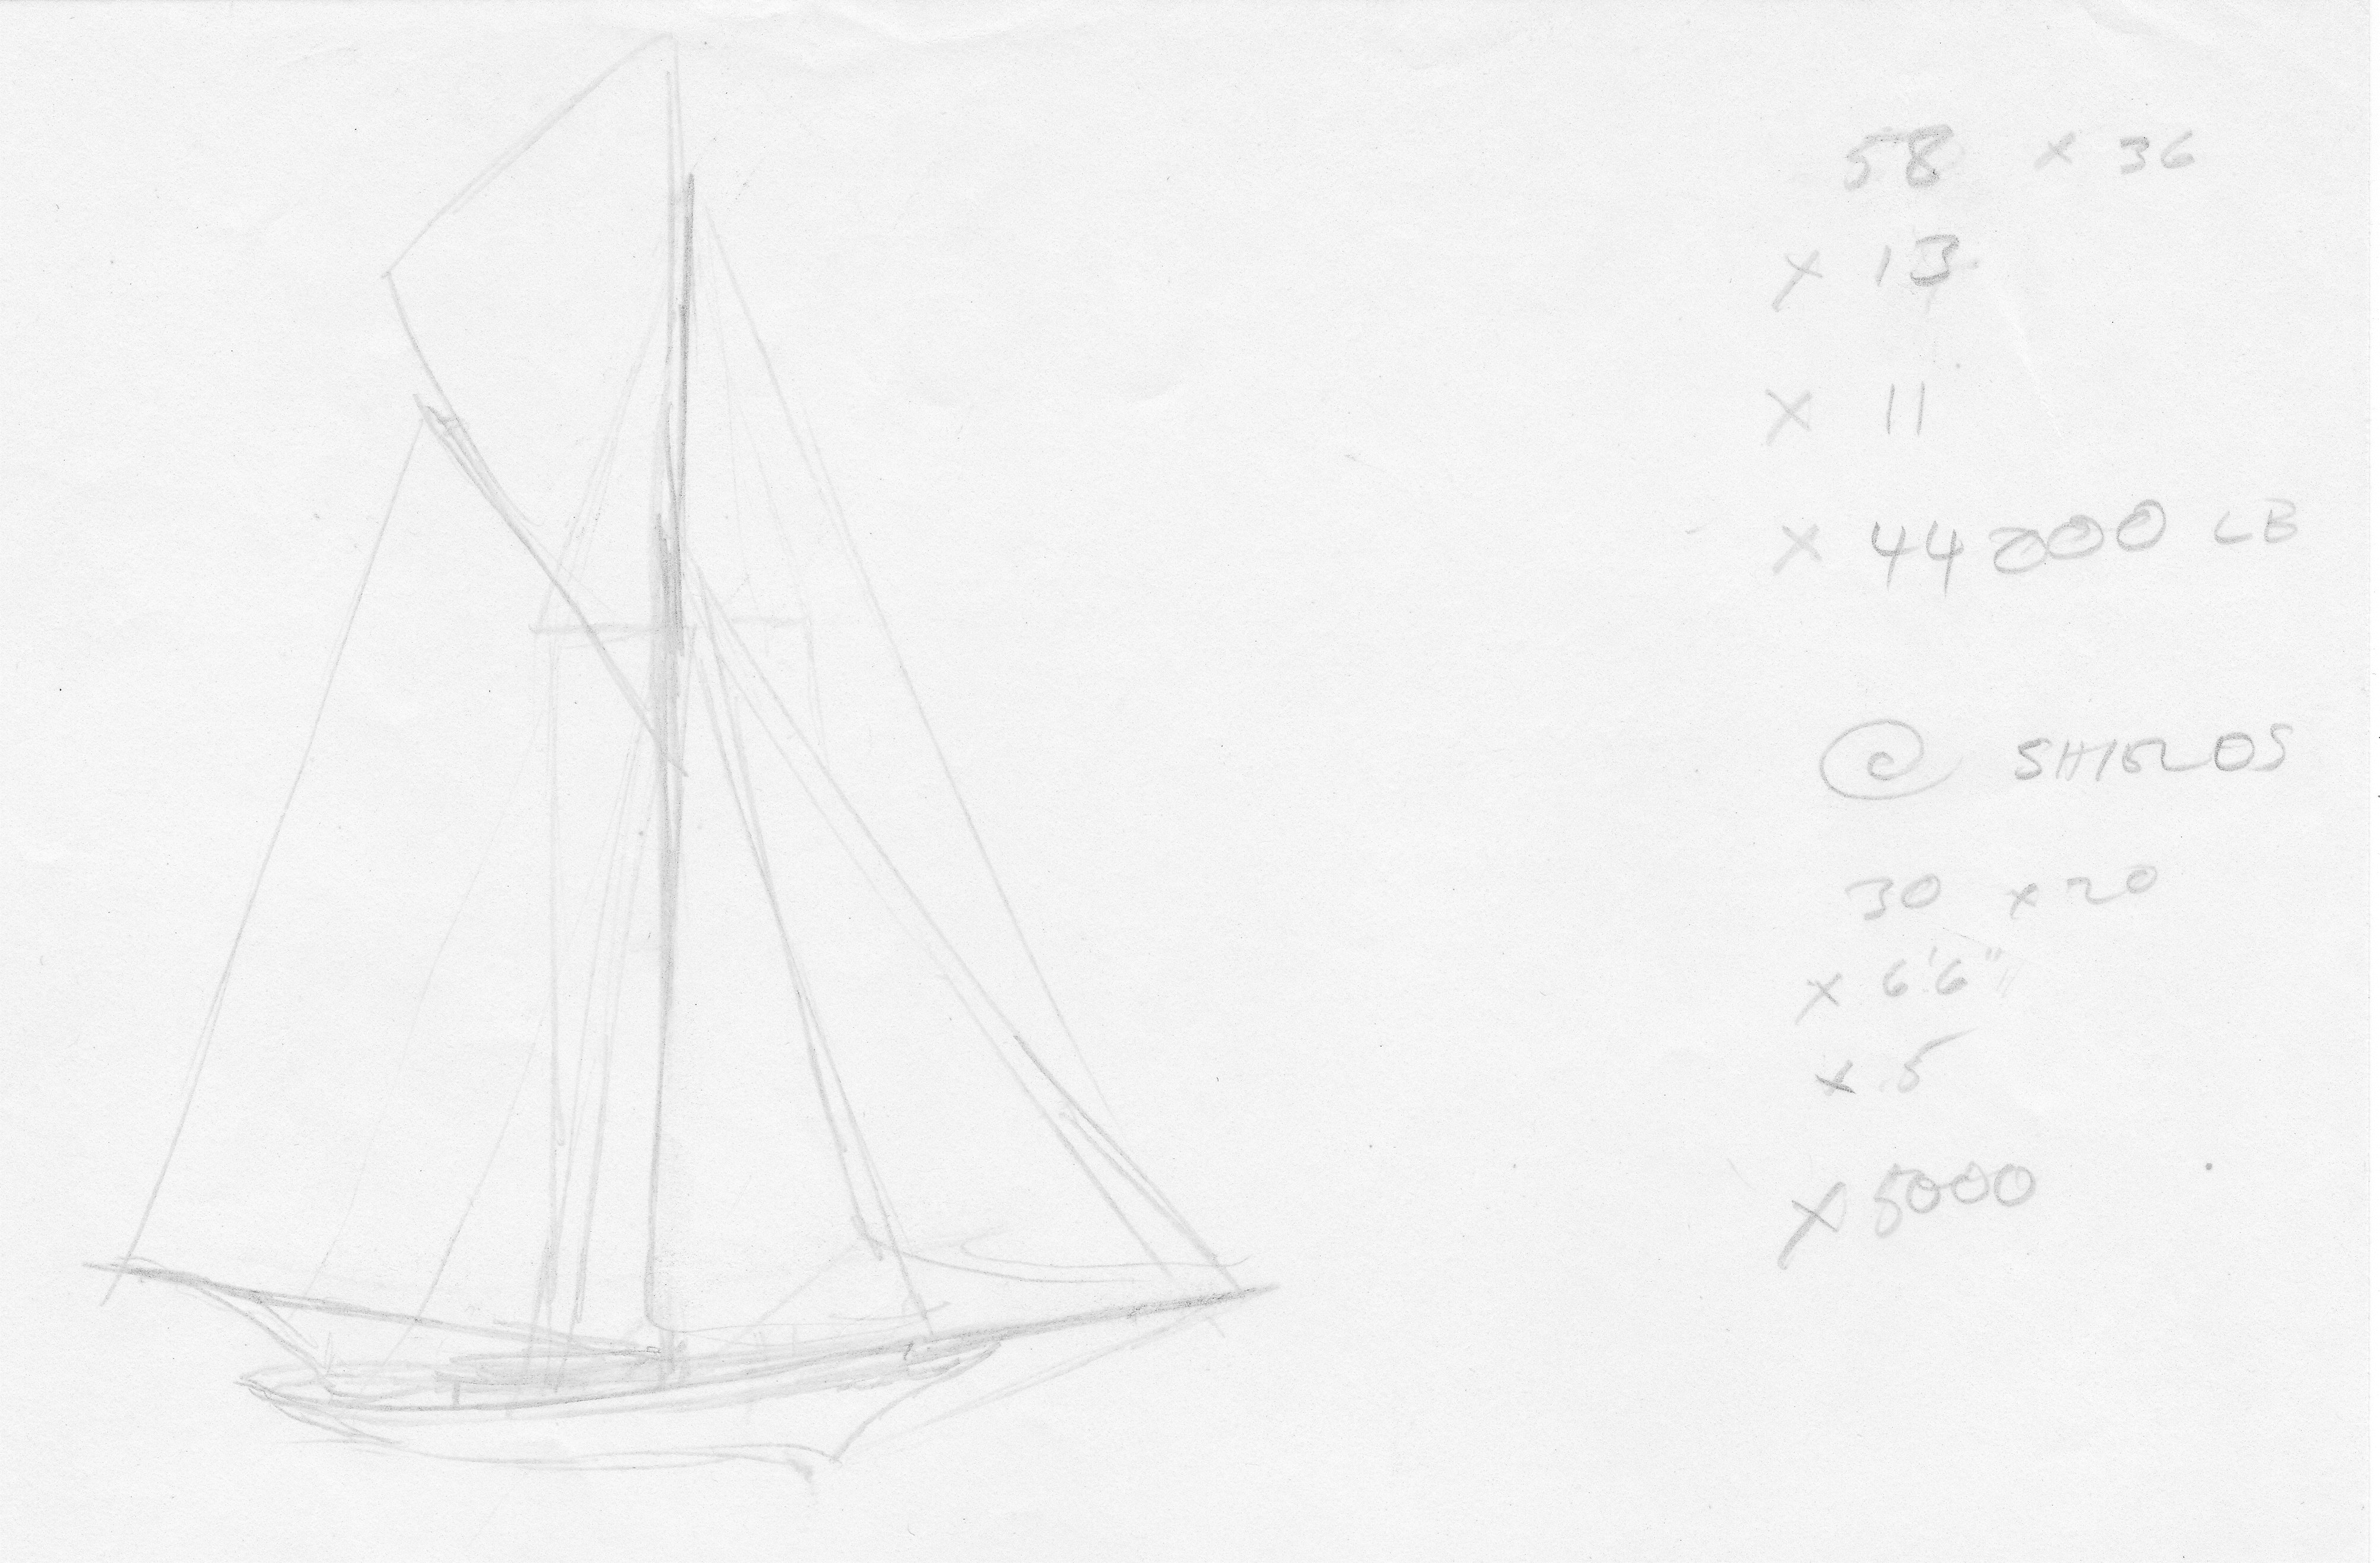 58 x 36
x 13
x 11
x 44000 LB
@ SHIELDS
30 x 20
x 6'6"
x 5
x 5000